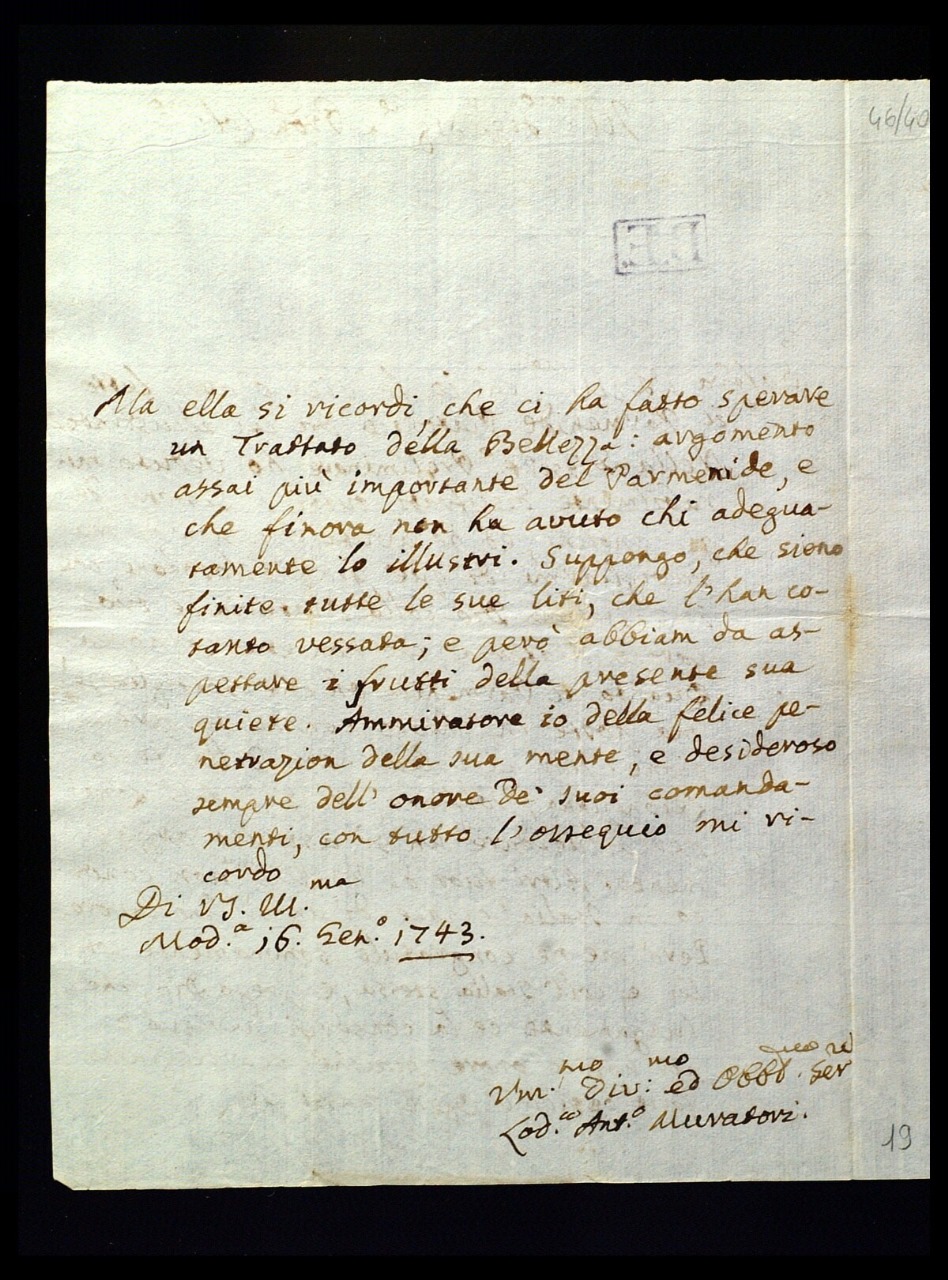 46/40
Ma ella si ricordi che ci ha fatto sperare
un Trattato della Bellezza: argomento
assai più importante del Parmenide, e
che finora non ha avuto chi adegua-
tamente lo illustri. Suppongo, che sieno
finite tutte le sue liti, che l'han co-
tanto vessata; e però abbiam da as-
pettare i frutti della presente sua
quiete. Ammiratore io della felice pe-
netrazion della sua mente, e desideroso
sempre dell'onore de' suoi comanda-
menti, con tutto l'ossequio mi ri-
cordo
Di VS. Ill.ma
Mod.a 16. Gen.o 1743.
Um.mo Div.mo ed Obbl. Ser
Lod.co Ant.o Muratori.
19